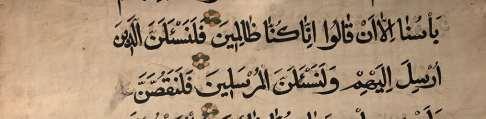 بَأْسُنَا إِلَّا أَنْ قَالُوا إِنَّا كُنَّا ظَالِمِينَ فَلَنَسْئَلَنَّ الَّذِينَ
أُرْسِلَ إِلَيْهِمْ وَلَنَسْئَلَنَّ الْمُرْسَلِينَ فَلَنَقُصَّنَّ